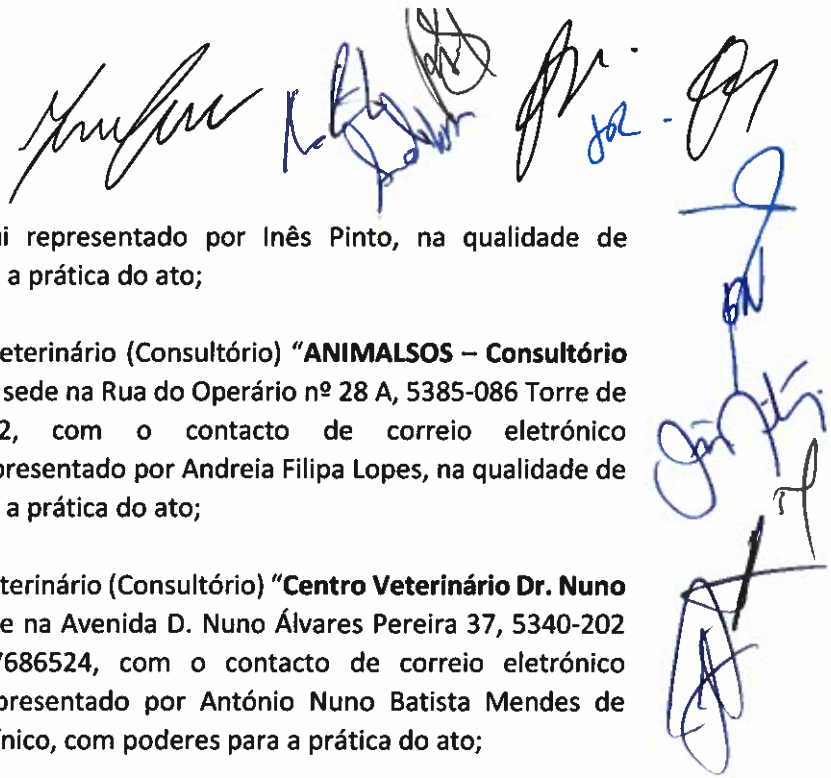 i representado por Inês Pinto, na qualidade de
a prática do ato;
eterinário (Consultório) "ANIMALSOS – Consultório
sede na Rua do Operário nº 28 A, 5385-086 Torre de
2, com o contacto de correio eletrónico
presentado por Andreia Filipa Lopes, na qualidade de
a prática do ato;
terinário (Consultório) "Centro Veterinário Dr. Nuno
e na Avenida D. Nuno Álvares Pereira 37, 5340-202
7686524, com o contacto de correio eletrónico
presentado por António Nuno Batista Mendes de
ínico, com poderes para a prática do ato;